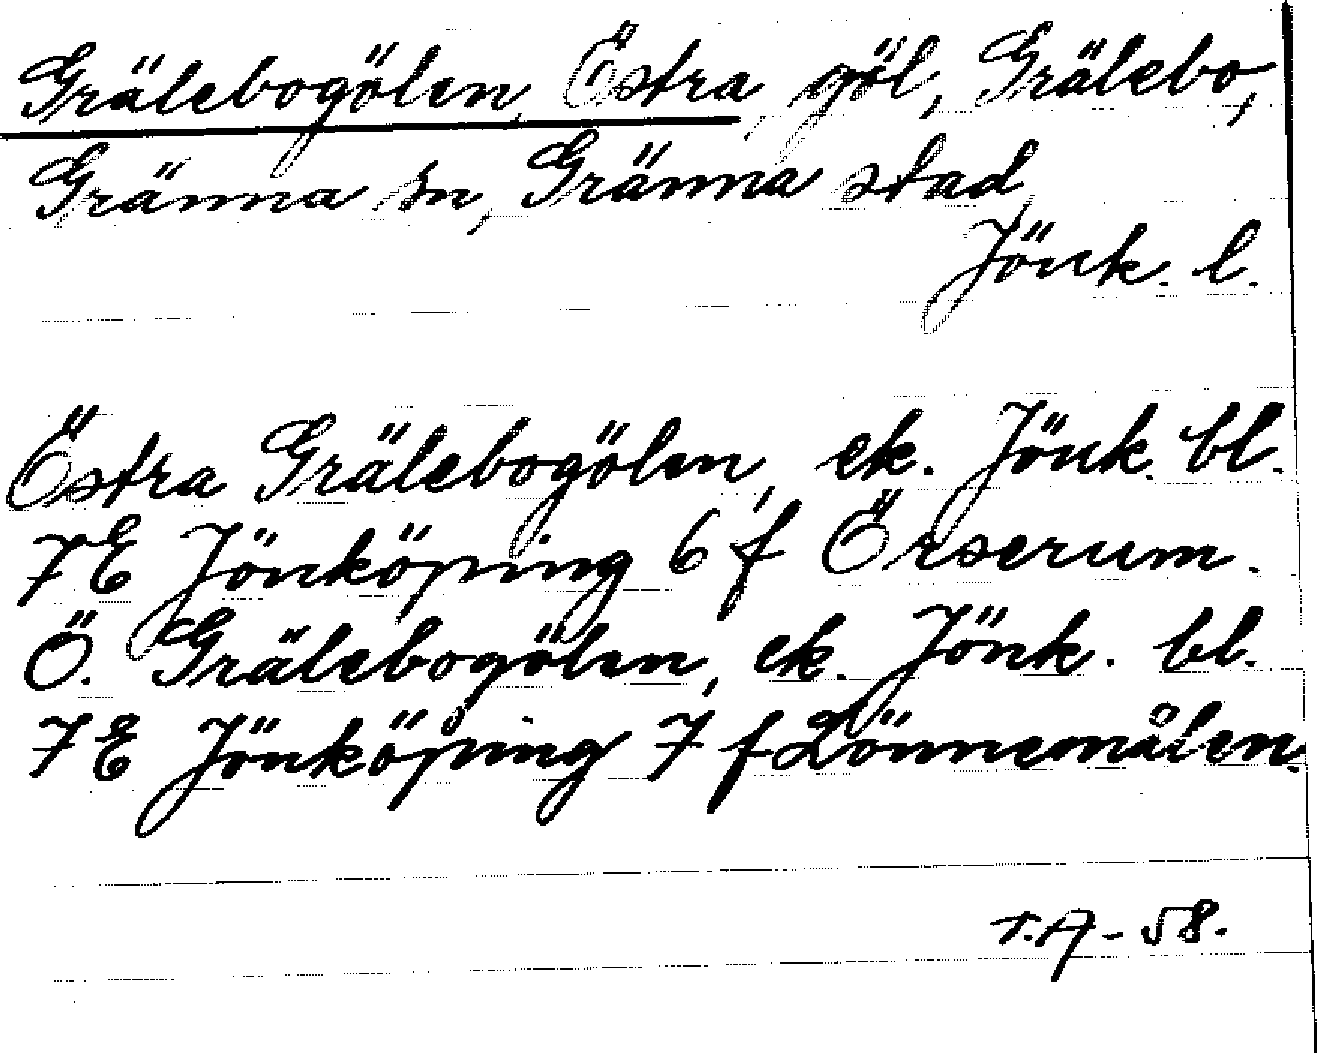 Grälebogölen, Östra, göl, Grälebo,
Gränna sn, Gränna stad,
Jönk. l.
Östra Grälebogölen, ek. Jönk. bl.
7E Jönköping 6 f Örserum.
Ö. Grälebogölen, ek. Jönk. bl.
7E Jönköping 7 f Lönnemålen.
T.A - 58.